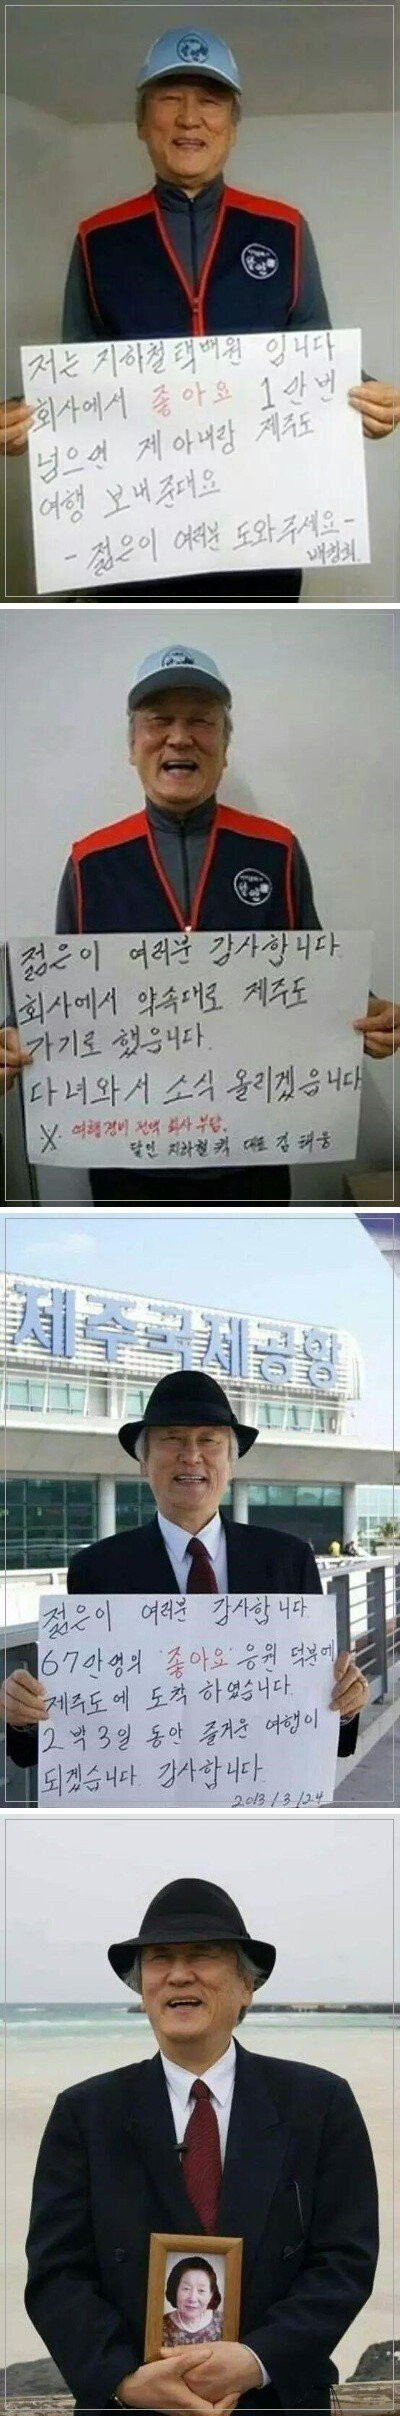 저는 지하철택배원 입니다
회사에서 좋아요 1만번
넘으면 제 아내랑 제주도
여행 보내준대요
- 젊은이 여러분 도와주세요 -
젊은이 여러분 감사합니다.
회사에서 약속대로 제주도
가기로 했읍니다.
다녀와서 소식 올리겠읍니다
※ 여행경비 전액 회사부담.
달인 지하철퀵 대표 김태웅
제주국제공항
젊은이 여러분 감사합니다.
67만명의 '좋아요' 응원 덕분에
제주도에 도착 하였습니다.
2박3일 동안 즐거운 여행이
되겠습니다. 감사합니다.
2013/3/24